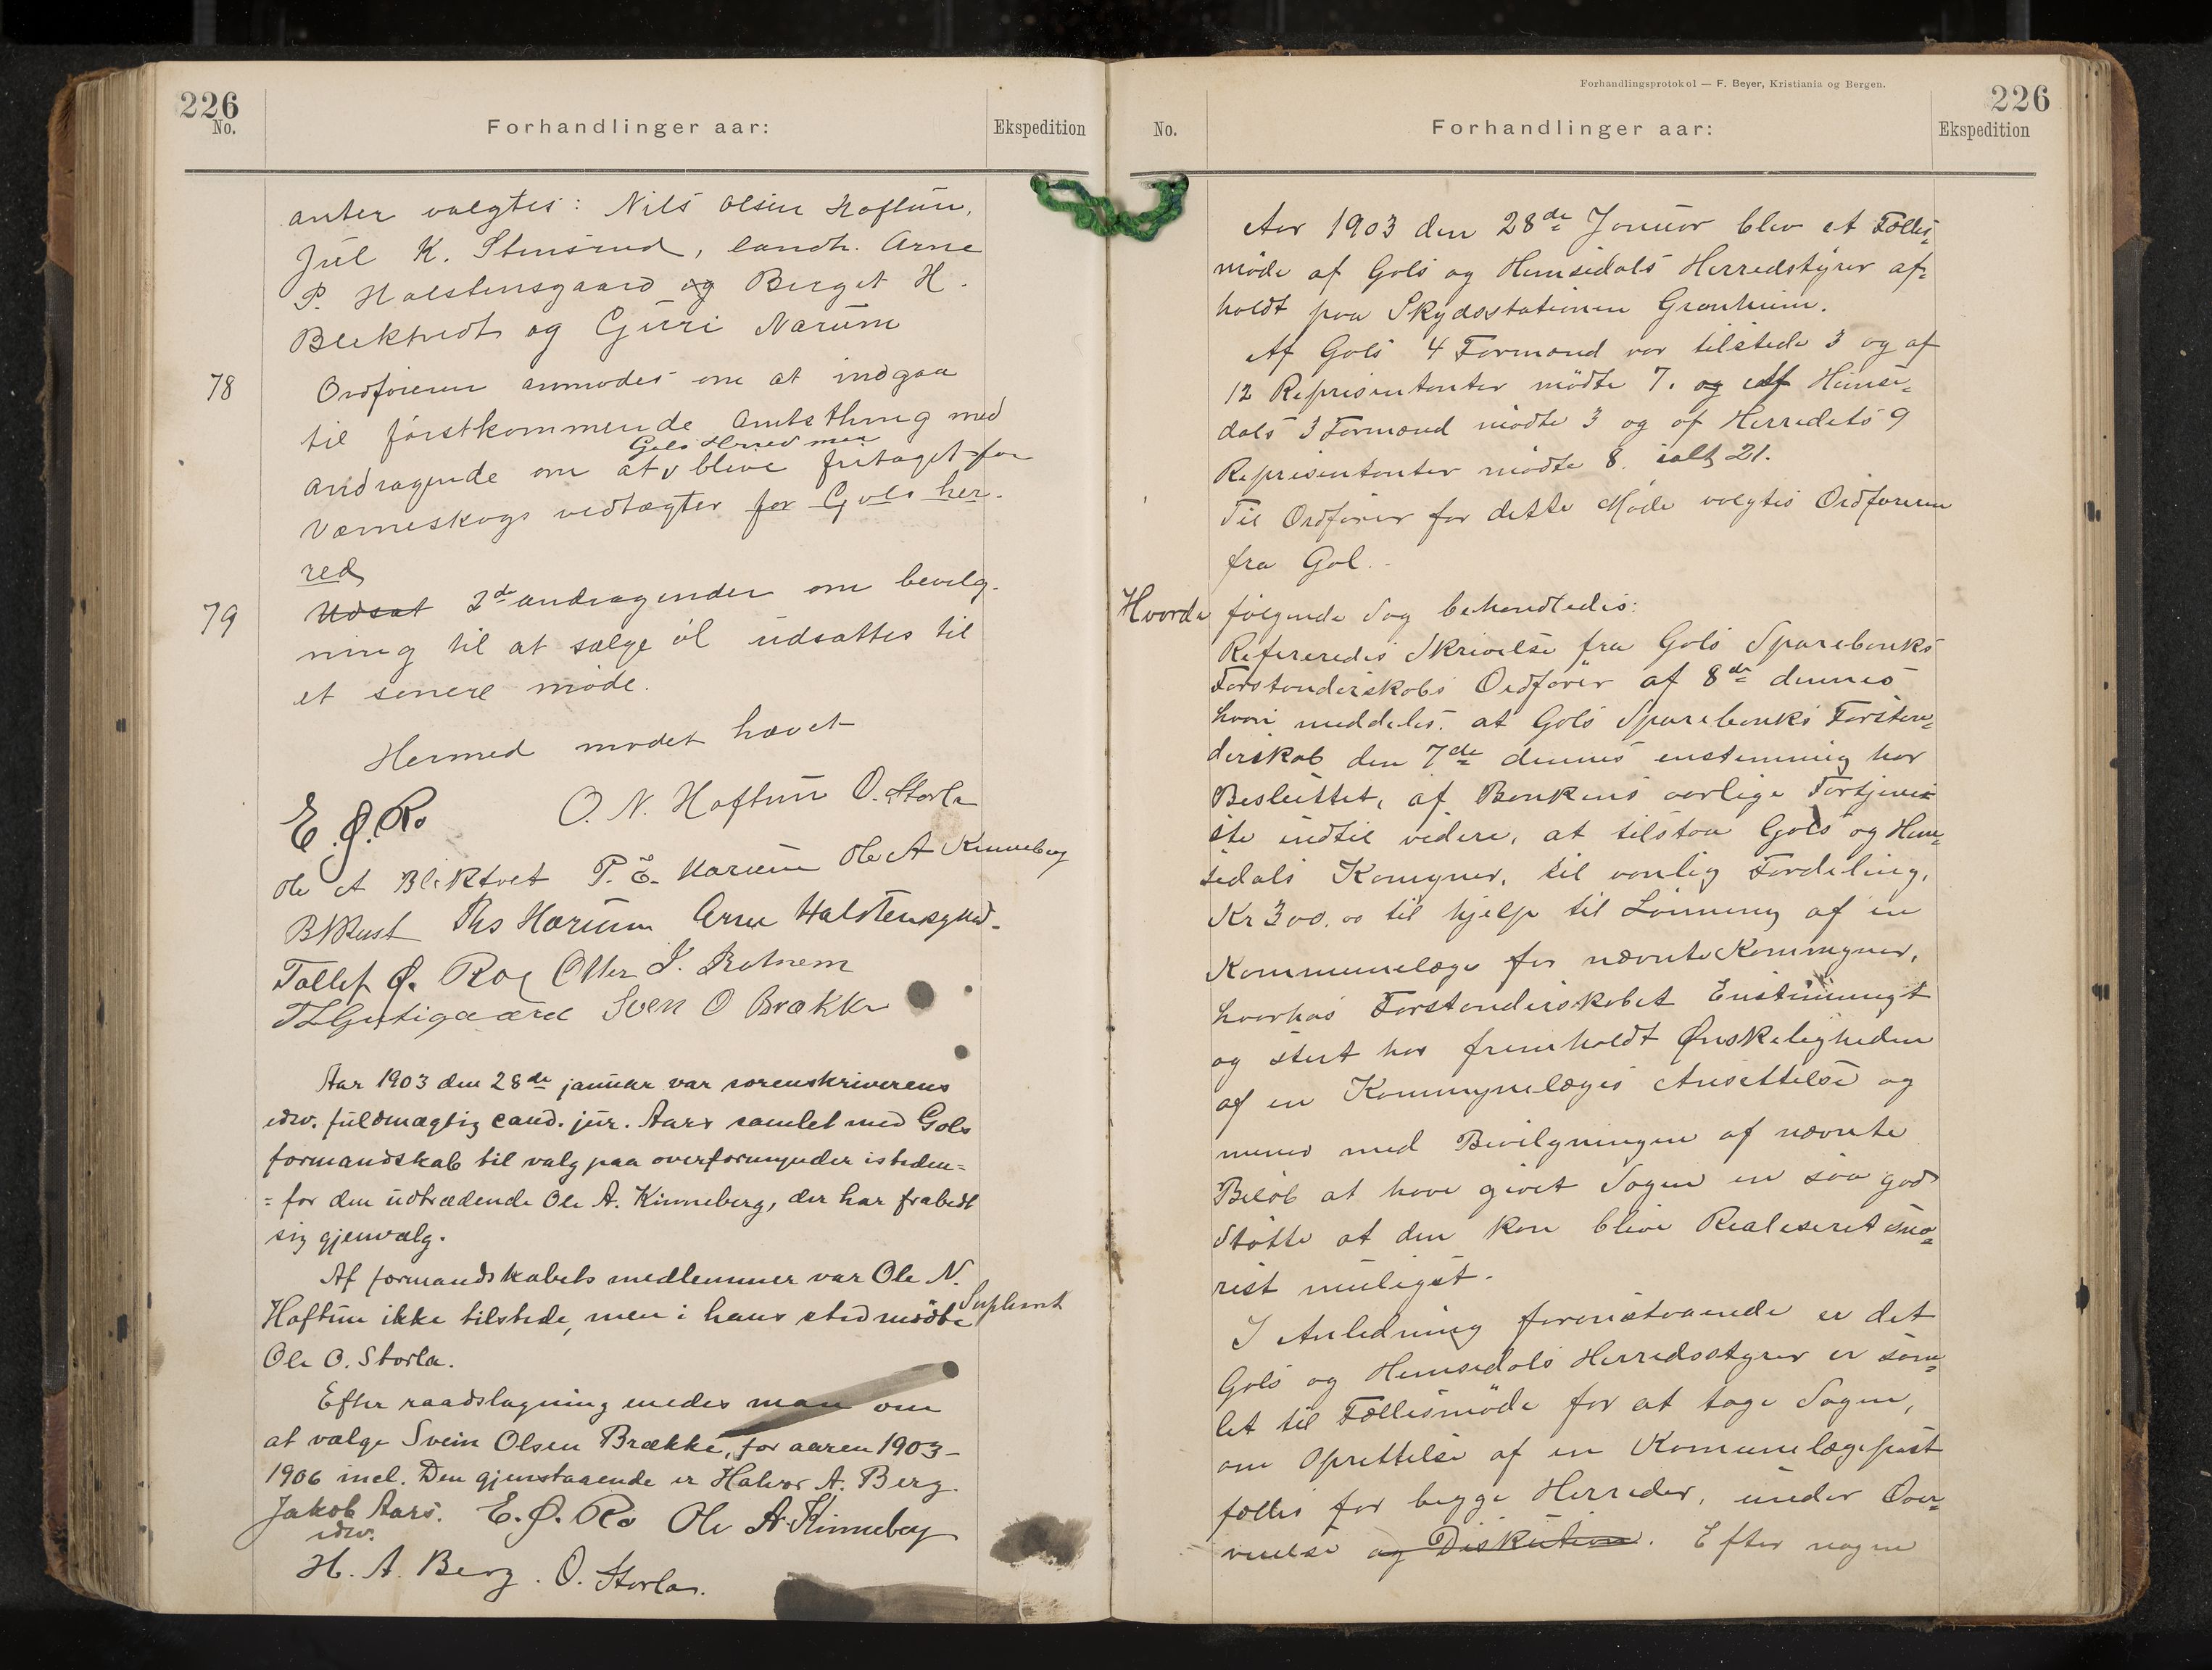 226
No.
Forhandlinger aar:
Ekspedition
anter valgtes: Nils Olsen Haftun,
Jul K. Stensrud, landh. Arne
P. Halstensgaard og Berget H.
Blektvedt og Guri Narum
78
Ordføreren anmodes om at indgaa
til førstkommende amtsthing med
Gols Herred maa
andragende om at blive fritaget for
Værneskogs vedtægter for Gols her-
red
79
Udsat 2de andragender om bevilg-
ning til at sælge øl udsattes til
et senere møde.
Hermed mødet hævet
E. Ø. Ro O. N. Haftun O. Storla
Ole A Blektvet P. E. Narum Ole A Kinneberg
B N Rust Ths Narum Arne Halstensgaard.
Tollef Ø. Ro Otter J. Rotnem
Sven O Brække
Aar 1903 den 28de januar var sorenskriverens
edsv. fuldmægtig cand. jur. Aars samlet med Gols
formandskab til valg paa overformynder isteden=
= for den udtrædende Ole A. Kinneberg, der har frabedt
sig gjenvalg.
Af formandskabets medlemmer var Ole N.
Haftun ikke tilstede, men i hans sted mødte Suplient
Ole O. Storla.
Efter raadslagning enedes man om
at vælge Svein Olsen Brække, for aaren 1903-
1906 incl. Den gjenstaaende er Halvor A. Berg.
Jakob Aars. E. Ø. Ro Ole A. Kinneberg
edsv.
H. A. Berg. O. Storla.
Forhandlingsprotokol — F. Beyer, Kristiania og Bergen.
226
No.
Forhandlinger aar:
Ekspedition
Aar 1903 den 28de Januar blev et Fælles=
møde af Gols og Hemsedals Herredstyrer af=
holdt paa Skydsstationen Granheim.
Af Gols 4 Formænd var tilstede 3 og af
12 Representanter mødte 7. og af Hemse=
dals 3 Formænd mødte 3 og af Herredets 9
Representanter mødte 8. ialt 21.
Til Ordfører for dette Møde valgtes Ordføreren
fra Gol.
Hvorda følgende Sag behandledes:
Refereredes Skrivelse fra Gols Sparebanks
Forstanderskabs Ordfører af 8de dennes
hvori meddeles. at Gols Sparebanks Forstan=
derskab den 7de dennes enstemmig har
Besluttet, af Bankens aarlige Fortjene
ste indtil videre, at tilstaa Gols og Hem=
sedals Komyner, til vanlig Fordeling,
Kr 300.00 til hjelp til Lønning af en
Kommunelæge for nævnte Kommyner,
hvorhos Forstanderskabet Enstemmigt
og stert har fremholdt Ønskeligheden
af en Kommynelæges Ansettelse og
mener med Bevilgningen af nævnte
Beløb at have givet Sagen en saa god
Støtte at den kan blive Realeseret sna=
rest muligst.
I Anledning foranstaaende er det
Gols og Hemsedals Herredsstyrer er sam=
let til Fællesmøde for at tage Sagen,
om Oprettelse af en Komunelægepost
fælles for begge Herreder, under Over=
veielse og Diskution. Efter nogen